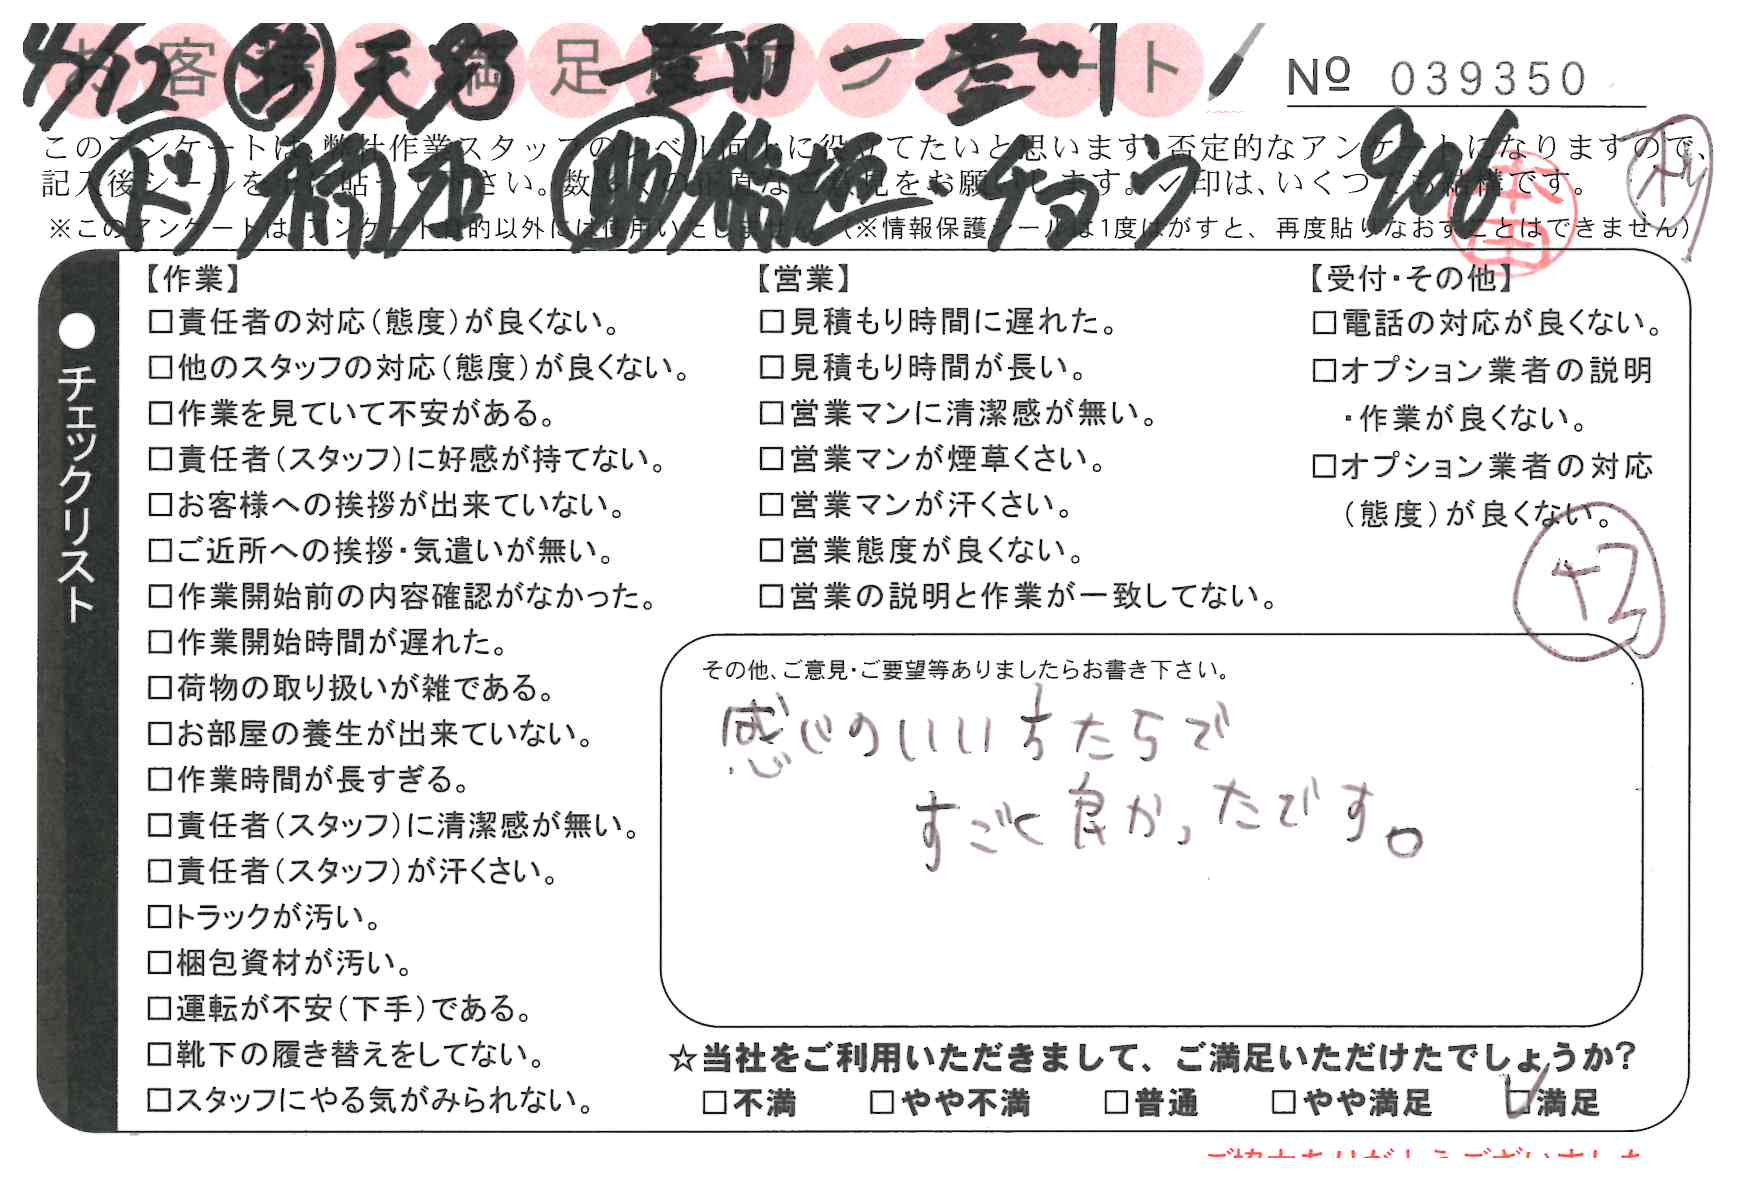 お客様不満足度アンケート
Nº 039350
4/12
このアンケートは、弊社作業スタッフのレベル向上に役立てたいと思います。否定的なアンケートになりますので、
記入後シールを上に貼って下さい。数多くの正直なご意見をお願いします。✓印は、いくつでも結構です。
※このアンケートは、アンケート目的以外には使用いたしません。（※情報保護シールは1度はがすと、再度貼りなおすことはできません）
●チェックリスト
【作業】
□責任者の対応（態度）が良くない。
□他のスタッフの対応（態度）が良くない。
□作業を見ていて不安がある。
□責任者（スタッフ）に好感が持てない。
□お客様への挨拶が出来ていない。
□ご近所への挨拶・気遣いが無い。
□作業開始前の内容確認がなかった。
□作業開始時間が遅れた。
□荷物の取り扱いが雑である。
□お部屋の養生が出来ていない。
□作業時間が長すぎる。
□責任者（スタッフ）に清潔感が無い。
□責任者（スタッフ）が汗くさい。
□トラックが汚い。
□梱包資材が汚い。
□運転が不安（下手）である。
□靴下の履き替えをしてない。
□スタッフにやる気がみられない。
【営業】
□見積もり時間に遅れた。
□見積もり時間が長い。
□営業マンに清潔感が無い。
□営業マンが煙草くさい。
□営業マンが汗くさい。
□営業態度が良くない。
□営業の説明と作業が一致してない。
【受付・その他】
□電話の対応が良くない。
□オプション業者の説明
・作業が良くない。
□オプション業者の対応
（態度）が良くない。
その他、ご意見・ご要望等ありましたらお書き下さい。
感じのいい方たちで
すごく良かったです。
☆当社をご利用いただきまして、ご満足いただけたでしょうか?
□不満 □やや不満 □普通 □やや満足 ☑満足
ご協力ありがとうございました